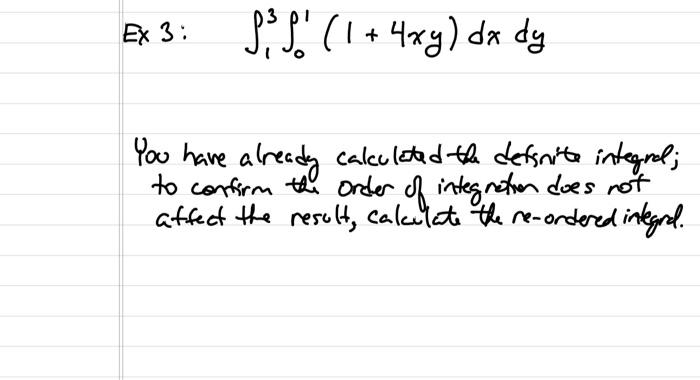 Ex 3: ∫₁³ ∫₀¹ (1 + 4xy) dx dy
You have already calculated the definite integral;
to confirm the order of integration does not
affect the result, calculate the re-ordered integral.